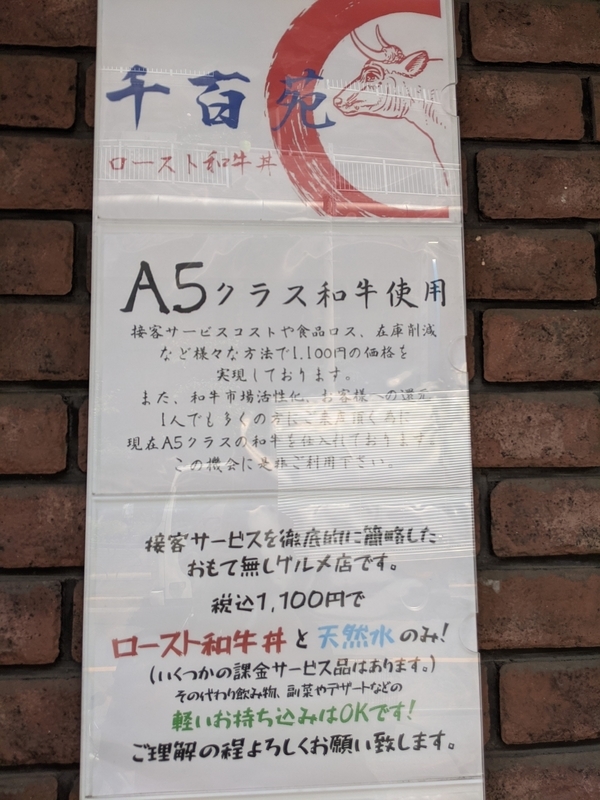 千百苑
ロースト和牛丼
A5クラス和牛使用
接客サービスコストや食品ロス、在庫削減
など様々な方法で1,100円の価格を
実現しております。
また、和牛市場活性化、お客様への還元
1人でも多くの方にご来店頂く為に
現在A5クラスの和牛を仕入れております。
この機会に是非ご利用下さい。
接客サービスを徹底的に簡略した
おもて無しグルメ店です。
税込1,100円で
ロースト和牛丼と天然水のみ!
(いくつかの課金サービス品はあります。)
その代わり飲み物、副菜やデザートなどの
軽いお持ち込みはOKです!
ご理解の程よろしくお願い致します。